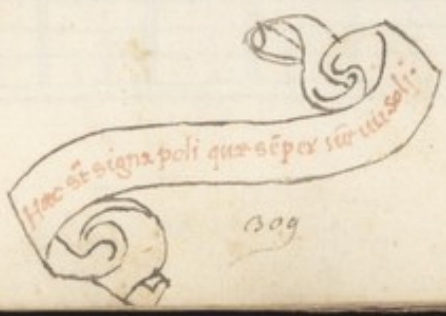 Hæc sūt signa poli quæ sēper sūt soli:
309